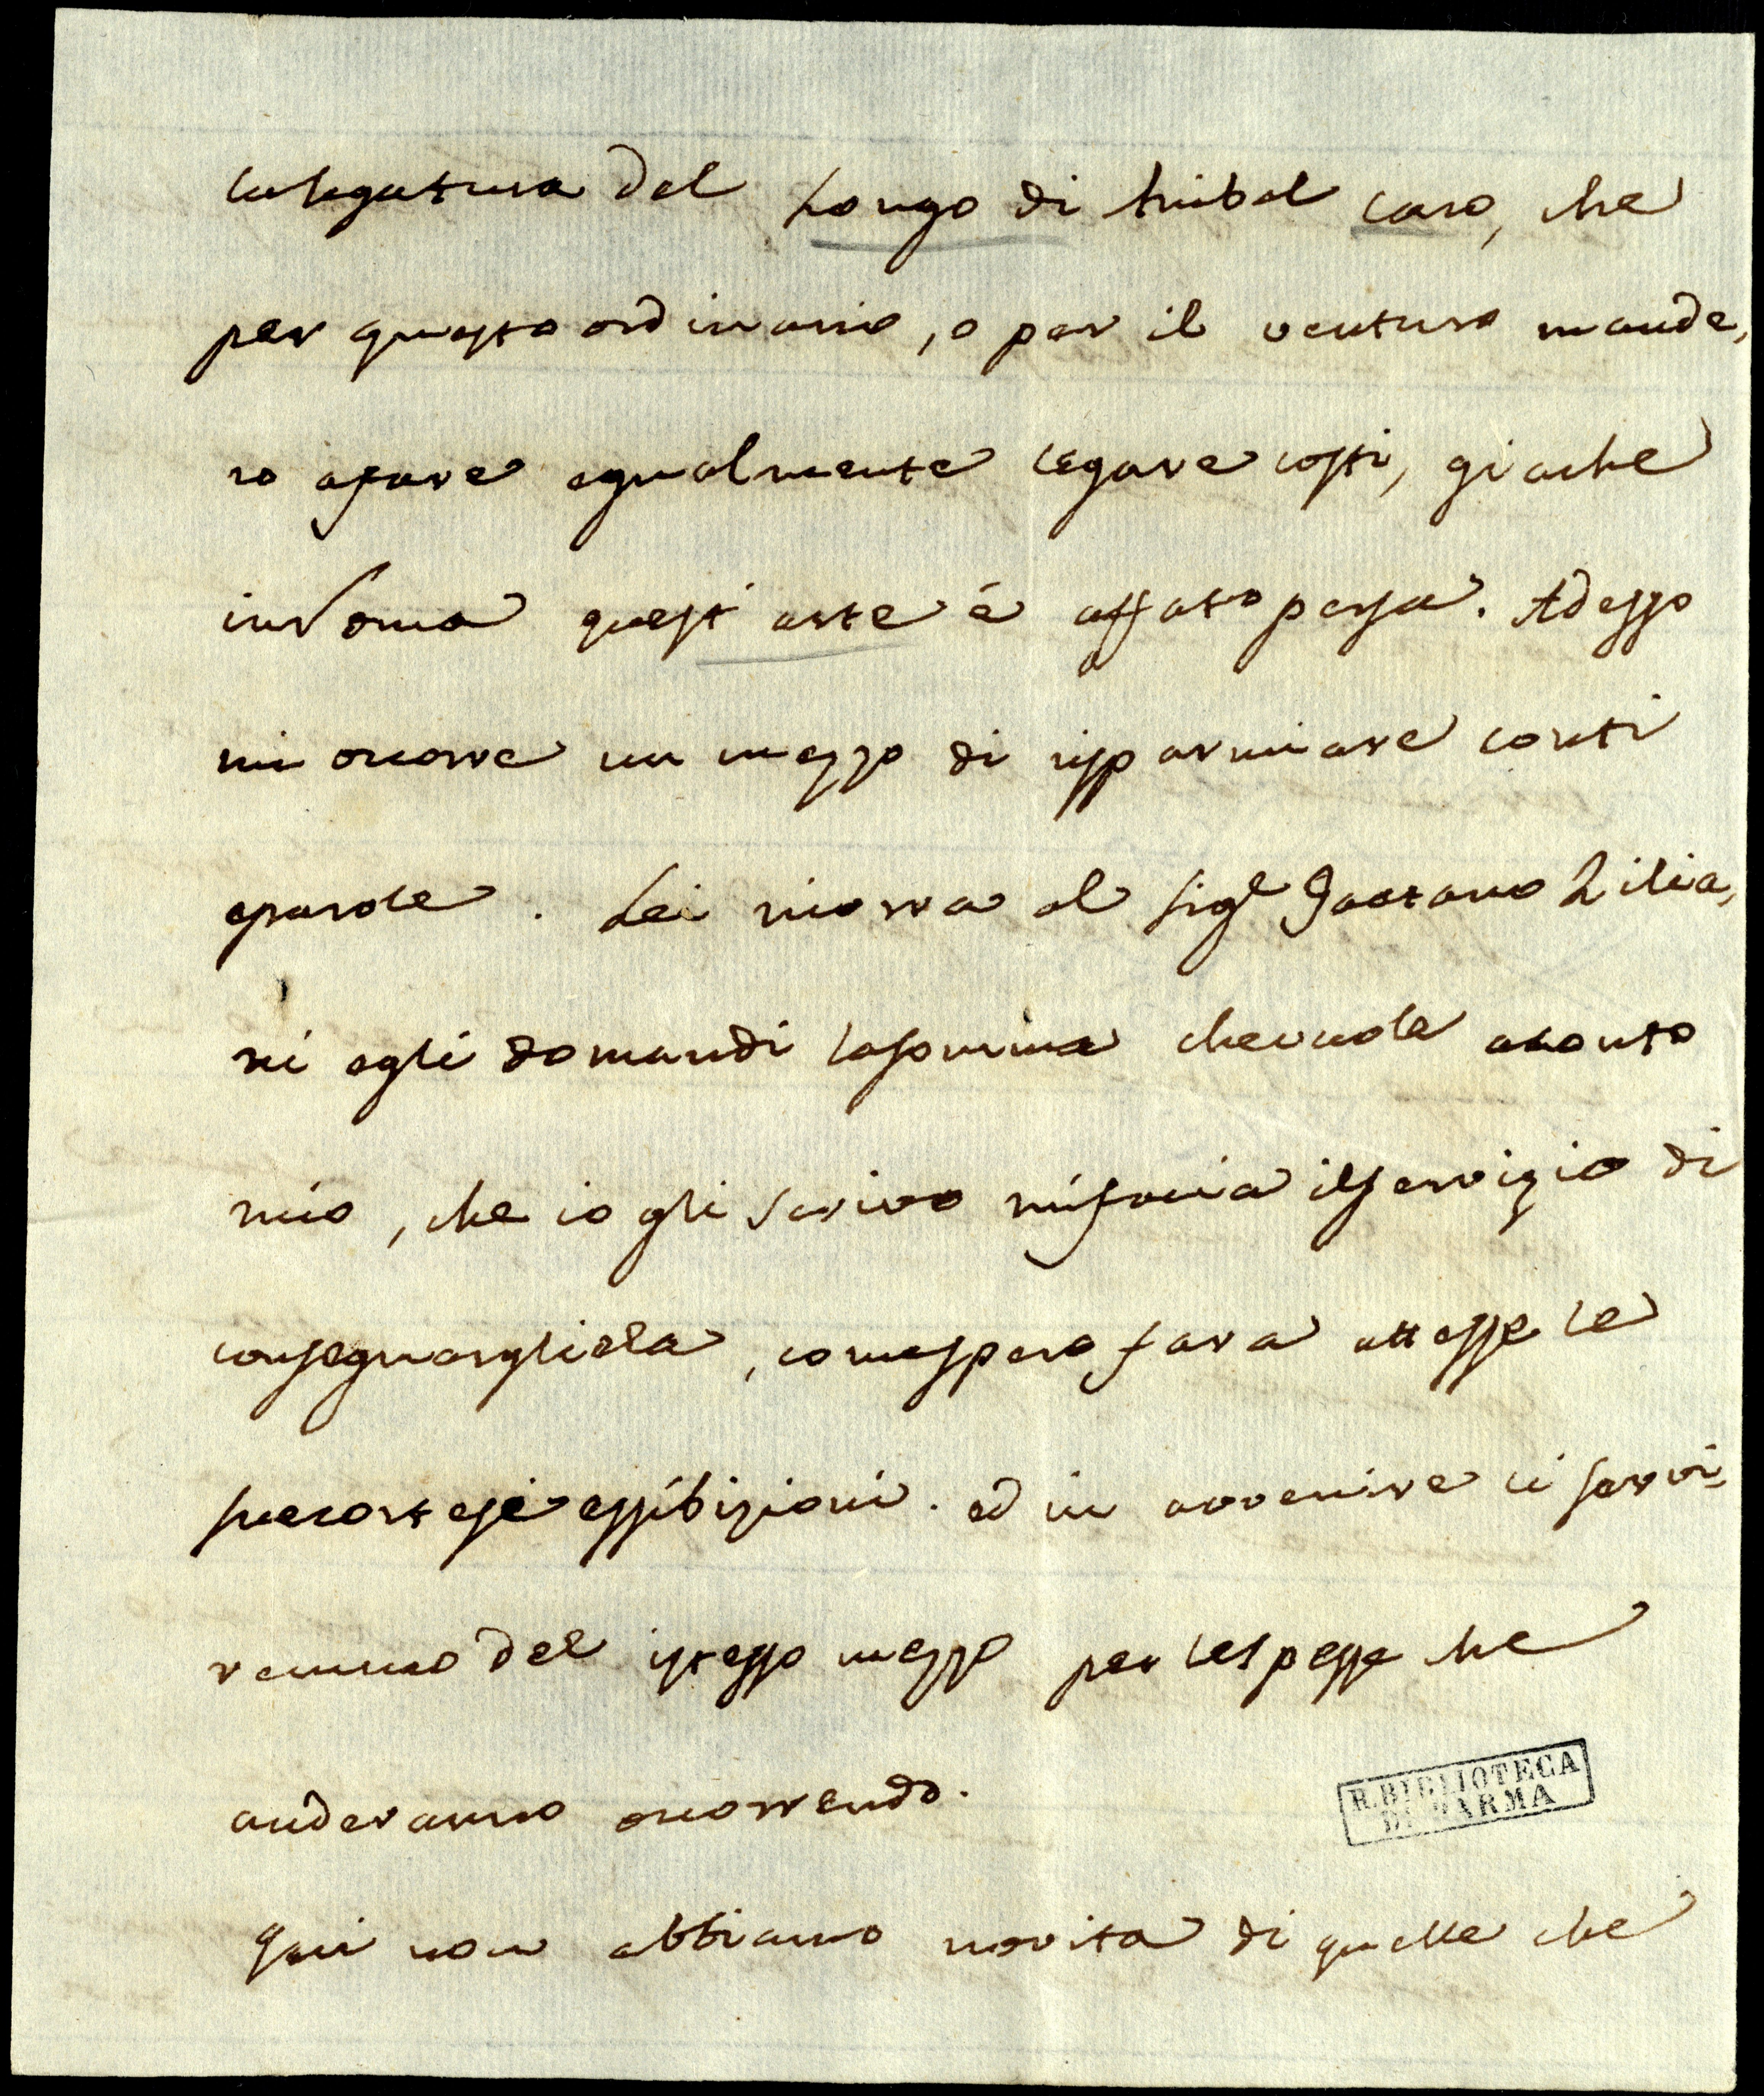 lalegatura del Longo di Anibal Caro, che
per questo ordinario, o per il venturo mande,
ro afare egualmente legare costi, giache
in Roma quest' arte é affato persa. Adesso
mi ocorre un mezzo di rissparmiare conti
eparole. Lei ricorra al Sigr Gaetano Zilia,
ni egli domandi lasomma chevuole aconto
mio, che io gli scrivo mifaccia ilservizio di
consegnargliela, comesspero fara attesse le
suecortesi essibizioni. ed in avvenire ci servi,
remmo del istesso mezzo per lespesse che
anderanno ocorrendo.
R. BIBLIOTECA
DI PARMA
Qui non abbiamo novita di quelle che